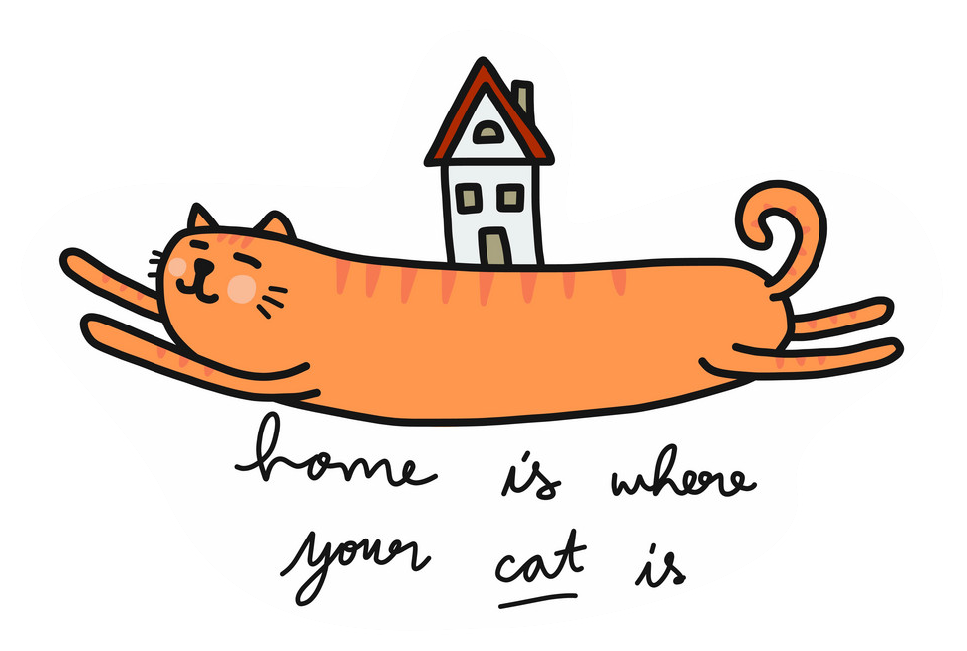 home is where
your cat is